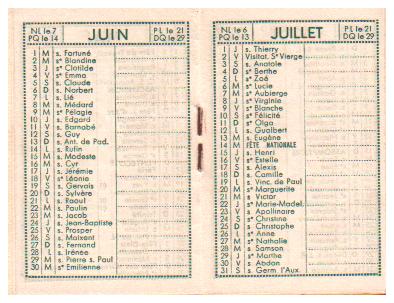 NL le 7 JUIN PL le 21
PQ le 14 DQ le 29
1 M s. Fortuné
2 M se Blandine
3 J se Clotilde
4 V se Emma
5 S s. Claude
6 D s. Norbert
7 L s. Lié
8 M s. Médard
9 M se Pélagie
10 J s. Edgard
11 V s. Barnabé
12 S s. Guy
13 D s. Ant. de Pad.
14 L s. Rufin
15 M s. Modeste
16 M s. Cyr
17 J s. Jérémie
18 V se Léonie
19 S s. Gervais
20 D s. Sylvère
21 L s. Raoul
22 M s. Paulin
23 M s. Jacob
24 J s. Jean-Baptiste
25 V s. Prosper
26 S s. Maixent
27 D s. Fernand
28 L s. Irénée
29 M s. Pierre s. Paul
30 M se Emilienne
NL le 6 JUILLET PL le 21
PQ le 13 DQ le 29
1 J s. Thierry
2 V Visitat. Se Vierge
3 S s. Anatole
4 D se Berthe
5 L se Zoé
6 M se Lucie
7 M se Aubierge
8 J se Virginie
9 V se Blanche
10 S se Félicité
11 D se Olga
12 L s. Gualbert
13 M s. Eugène
14 M FÊTE NATIONALE
15 J s. Henri
16 V se Estelle
17 S s. Alexis
18 D s. Camille
19 L s. Vinc. de Paul
20 M se Marguerite
21 M s. Victor
22 J se Marie-Madel.
23 V s. Apollinaire
24 S se Christine
25 D s. Christophe
26 L se Anne
27 M se Nathalie
28 M s. Samson
29 J se Marthe
30 V s. Abdon
31 S s. Germ l'Aux